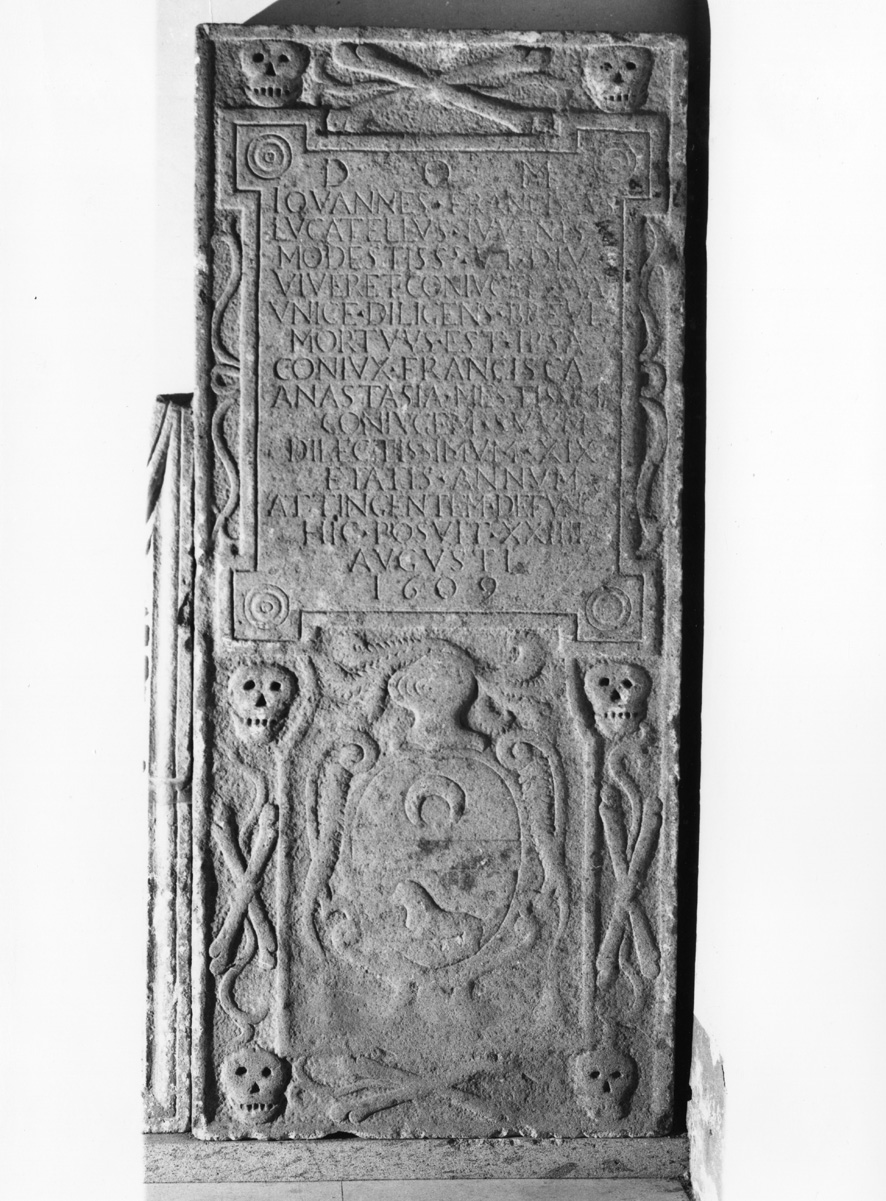 D O M
IOVANNES·FRANC
LVCATELLVS·IVVENIS
MODESTISS·VT·DIV
VIVERET·CONIVGEM
VNICE·DILIGENS·BREVI
MORTVVS·EST·IPSA
CONIVX·FRANCISCA
ANASTASIA·MESTISSIM
CONIVGEM·SVVM
DILECTISSIMVM·XIX
ETATIS·ANNVM
ATTINGENTEM·DEFVN
HIC·POSVIT·XXIIII
AVGVSTI
1609